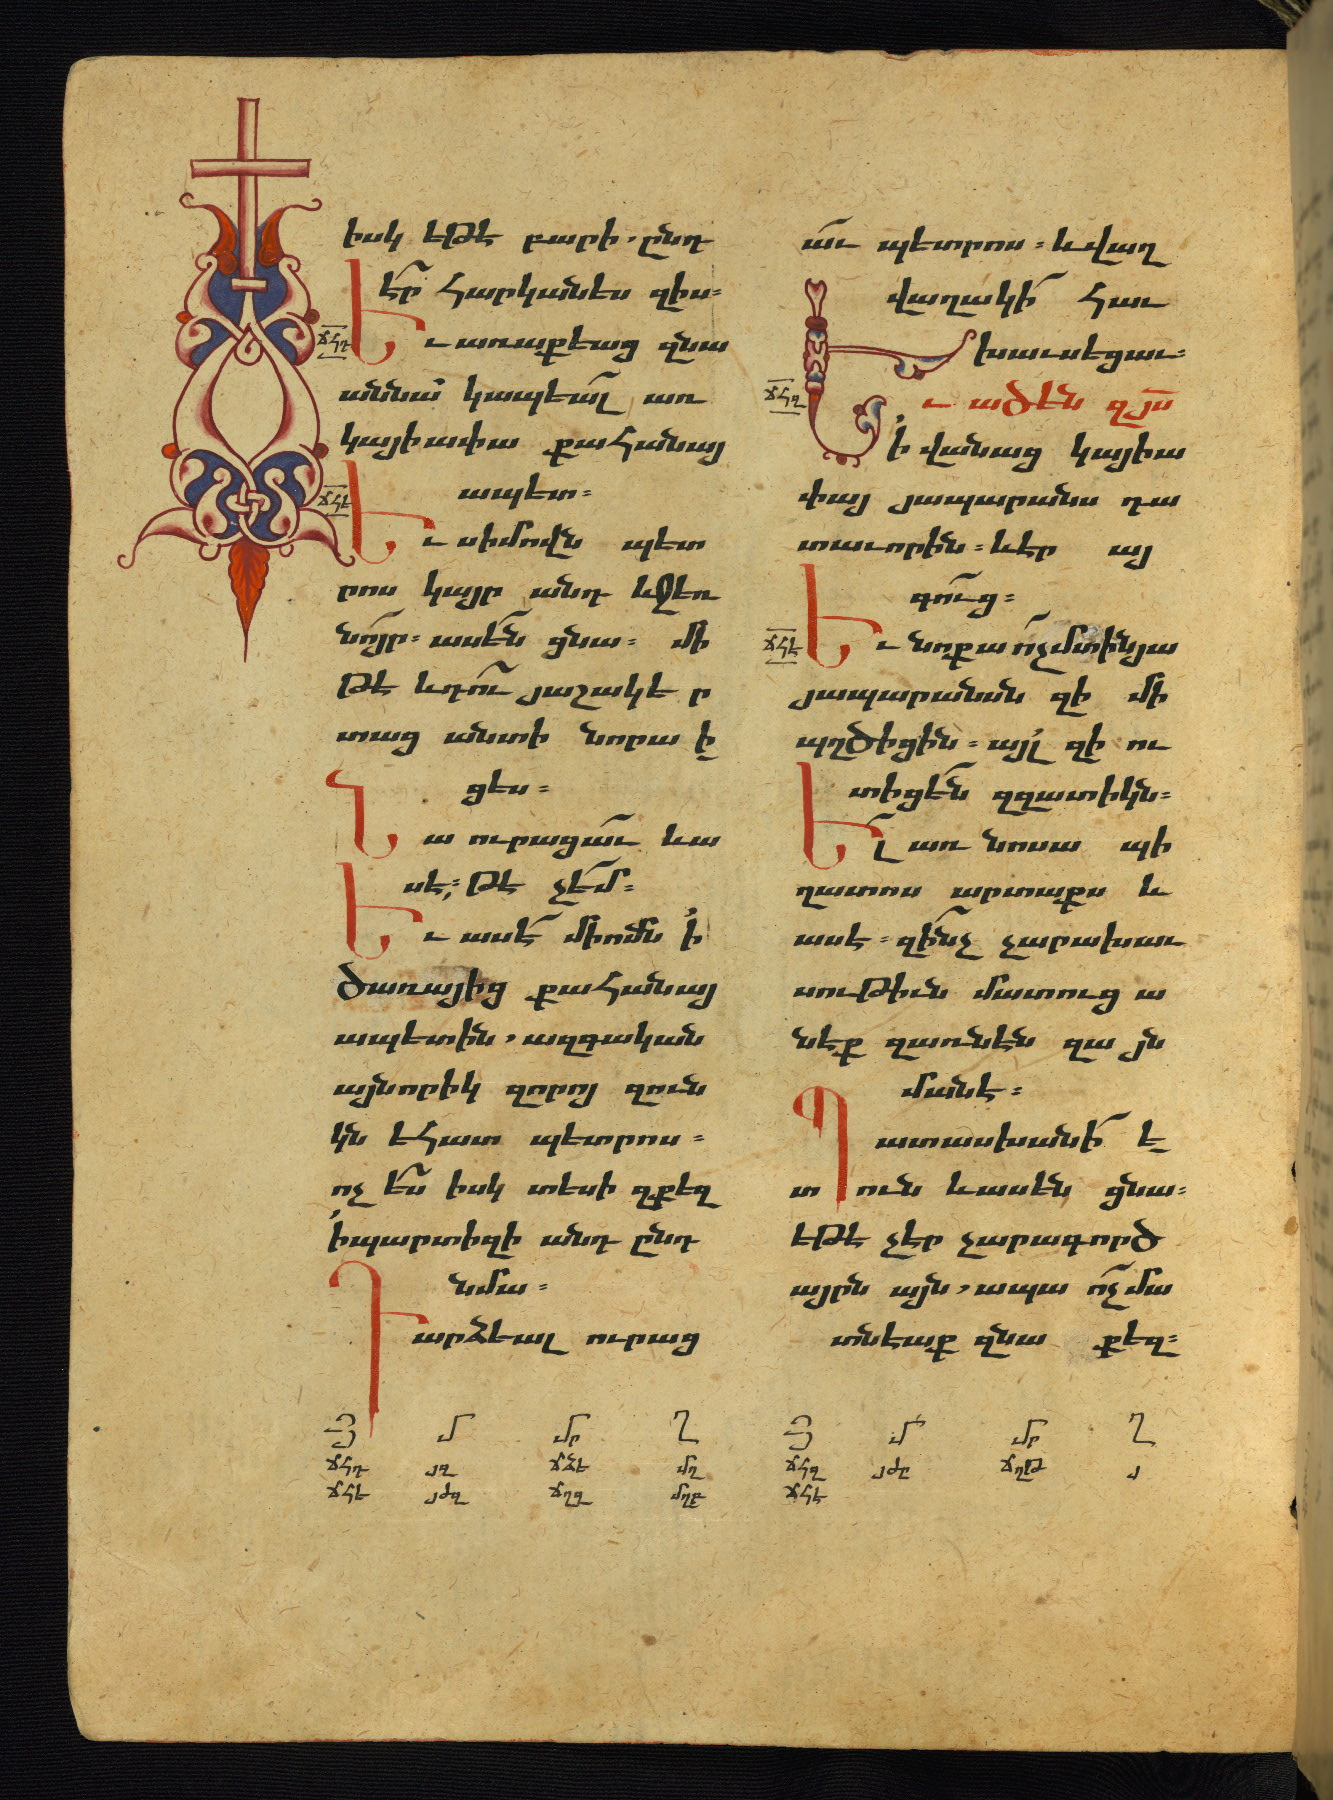 իսկ եթէ բարի, ընդ
է՞ր հարկանես զիս։
ճհդ
Եւ առաքեաց զնա
աննա կապեալ առ
կայիափա քահանայ
ապետ։
ճհե
Եւ սիմովն պետ
րոս կայր անդ և ջեռ
նոյր։ ասեն ցնա։ մի
թէ և դու յաշակե ր
տաց անտի նորա ի
ցես։
Նա ուրացաւ և ա
սէ։ թէ չեմ։
Եւ ասէ մի ոմն ի
ծառայից քահանայ
ապետին, ազգական
այնորիկ զորոյ զուն
կն եհատ պետրոս։
ոչ ես իսկ տեսի զքեզ
ի պարտիզի անդ ընդ
նմա։
Դարձեալ ուրաց
աւ պետրոս։ և վաղ
վաղակի հաւ
խաւսեցաւ։
ճհզ
Եւ ածեն զյս
ի վանաց կայիա
փայ յապարանս դա
տաւորին։ և էր այ
գուց։
ճհէ
Եւ նոքա ոչ մտին յա
յապարանսն զի մի
պղծիցին։ այլ զի ու
տիցեն զզատիկն։
Ել առ նոսա պի
ղատոս արտաքս և
ասէ։ զինչ չարախաւ
սութիւն մատուց ա
նէք զառնեն զա յն
մանէ։
Պատասխանի ե
տուն և ասեն ցնա։
եթէ չէր չարագործ
այրն այն, ապա ոչ մա
տնեաք զնա քեզ։
Յ մ մր Ղ
ճհդ յզ ճձե մղ
ճհե յժզ ճղզ մղբ
Յ մ մր Ղ
ճհզ յժը ճղթ յ
ճհէ